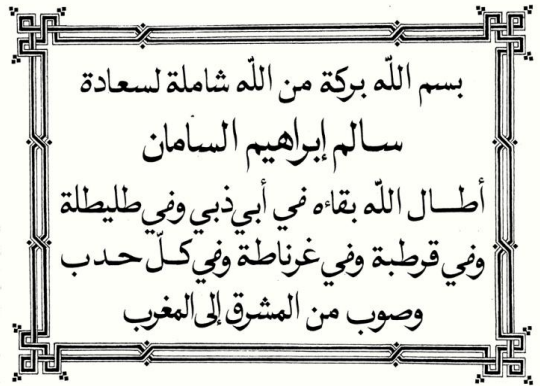 بسم الله بركة من الله شاملة لسعادة
سالم إبراهيم السامان
أطال الله بقاءه في أبي ذبي وفي طليطلة
وفي قرطبة وفي غرناطة وفي كلّ حدب
وصوب من المشرق إلى المغرب